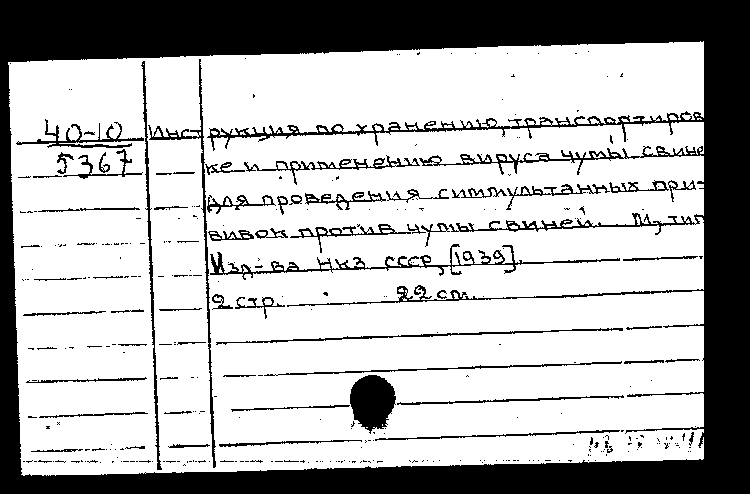 40-10
5367
Инструкция по хранению, транспортиров
ке и применению вируса чумы свине
для проведения симмультанных при-
вивок против чумы свиней. М, тип
Изд-ва НКЗ СССР, [1939].
2 стр. 22 см.